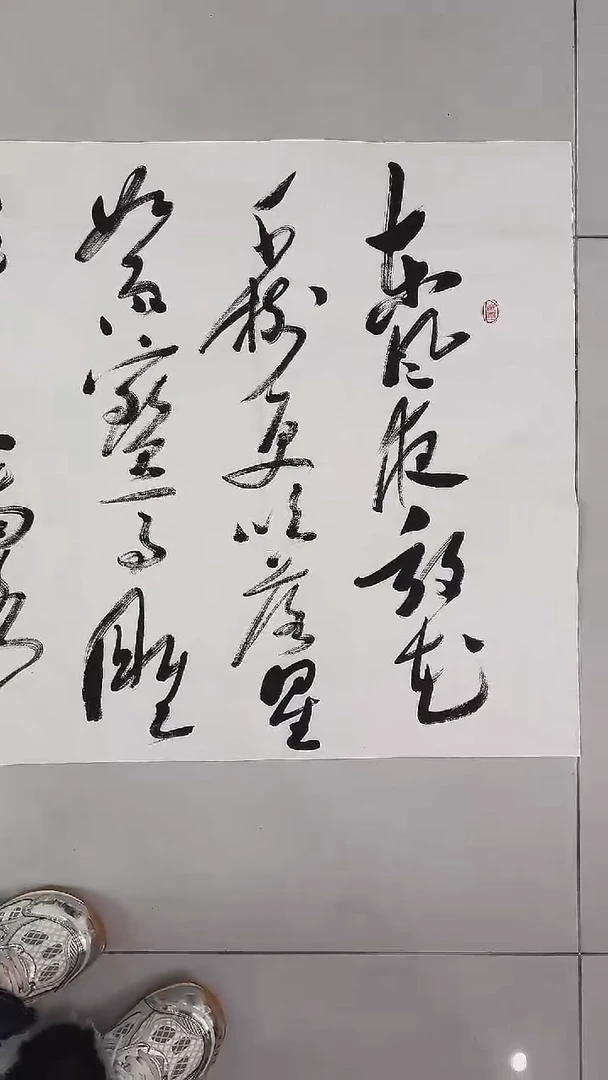 東風夜放花
千樹更吹落星
如雨寶馬雕